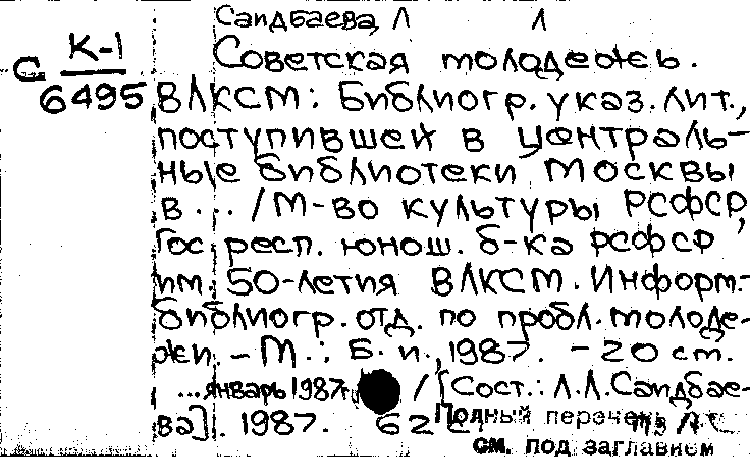 Саидбаева, Л Л
С К-1
6495
Советская молодежь.
ВЛКСМ: Библиогр. указ. лит.,
поступившей в централь-
ные библиотеки Москвы
в ... / М-во культуры РСФСР,
Гос. респ. юнош. б-ка РСФСР
им. 50-летия ВЛКСМ. Информ.-
библиогр. отд. по пробл. молоде-
жи. - М.: Б. и., 1987. - 20 см.
...январь 1987г. / [Сост.: Л.Л. Саидбае-
ва]. 1987. 62 с.
Полный перечень
см. под заглавием